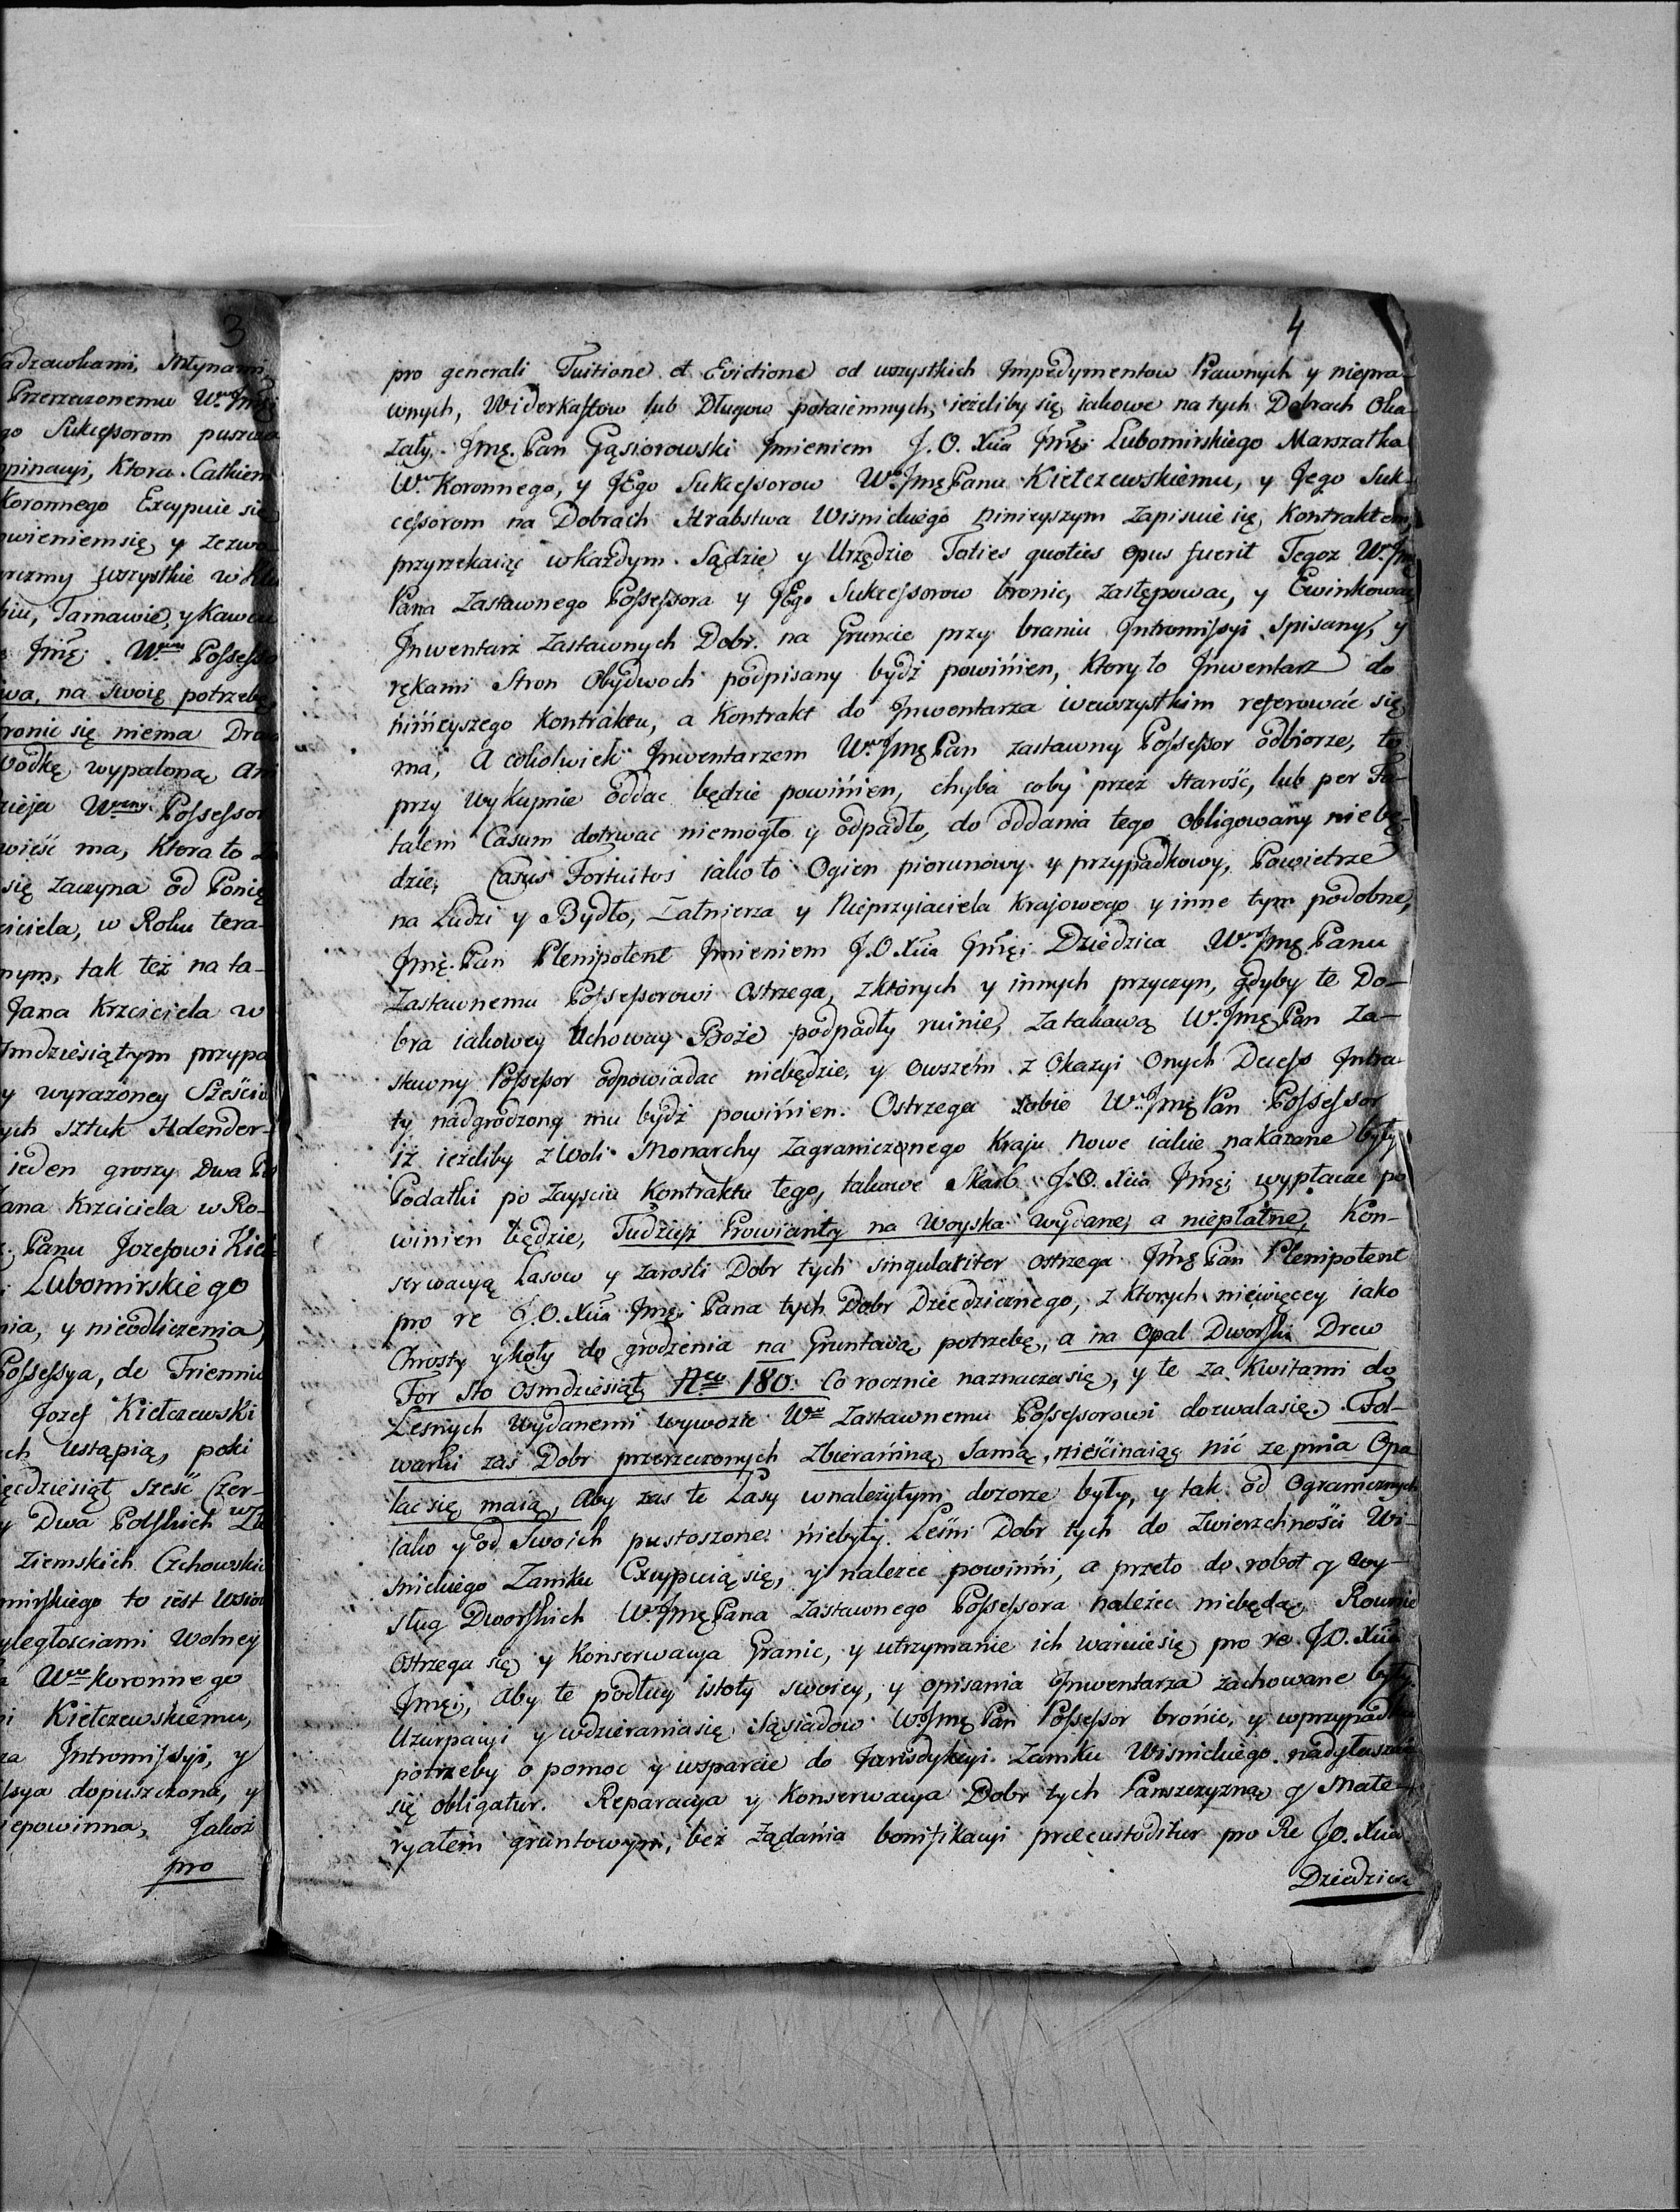 3
adzawkami, Młynami,
Przerzeczonemu Wu Jmę
go Sukcessorom puszcza
pinacyi, Ktora Calkiem
Koronnego Excypuie się
owieniem się, y zezwo-
wszystkie
biu, Tarnawie, y Kawcu
Jmę: Possesso
wa, na swoię potrzebę,
bronic się niema
wodkę wypaloną ani
Possessor
wieść ma, Ktora to
się zaczyna od Ponie
ciciela, w Roku tera-
nym, tak też na ta-
Jana Krzciciela w
smdziesiątym przypa
y wyrażoney Sześciu
ych sztuk Hdender-
ieden groszy Dwa
ana Krzciciela w Ro-
Panu Jozefowi Kieł
i Lubomirskiego
nia, y nieodliczenia,
Possessya, de Triennio
Jozef Kiełczewski
ch ustąpią, poki
ięćdziesiąt sześć Czer-
y Dwa Polskich
Ziemskich Czchowskich
mirskiego to iest Wsiow
yległosciami Wolney
a Wgo Koronnego
i Kiełczewskiemu,
za Intromissyi, y
ssya dopuszczona, y
iepowinna, Jakoż
pro
4
pro generali Tuitione et Evictione od wszystkich Impedymentow Prawnych y niepra-
wnych, Widerkaffow lub Długow potaiemnych, ieżeliby się iakowe na tych Dobrach Oka-
zały. Jmę. Pan Gąsiorowski Jmieniem J. O. Xcia Jmći Lubomirskiego Marszałka
Wo Koronnego, y JEgo Sukcessorow Wu JmęPanu Kiełczewskiemu, y Jego Suk-
cessorom na Dobrach Hrabstwa Wisnickiego ninieyszym zapisuie się Kontraktem,
przyrzekaiąc wkażdym Sądzie y Urzędzie Toties quoties opus fuerit Tegoz Wo Jmę
Pana Zastawnego Possessora y JEgo Sukcessorow bronic, zastępowac, y Ewinkować,
Jnwentarz Zastawnych Dobr na Gruncie przy braniu Intromissyi Spisany, y
rękami Stron Obydwoch podpisany bydź powinien, Ktory to Inwentarz do
ninieyszego Kontraktu, a Kontrakt do Inwentarza wewszystkim referować się
ma, A cokolwiek Inwentarzem Wy Jmę Pan zastawny Possessor odbierze, to
przy wykupnie oddac będzie powinien, chyba coby przez starość, lub per Fa-
talem Casum dotrwac niemogło y odpadło, do oddania tego obligowany niebę-
dzie, Casus Fortuitos iako to Ogien piorunowy y przypadkowy, Powietrze
na Ludzi y Bydło, Żałnierza y Nieprzyiaciela Krajowego y inne tym podobne,
Jmę. Pan Plenipotent Jmieniem J.O. Xcia Jmći Dziedzica Wu Jmę Panu
Zastawnemu Possessorowi Ostrzega, zktórych y innych przyczyn, gdyby te Do-
bra iakowey Uchoway Boże podpadły ruinie, zatakową Wy Jmę Pan Za-
stawny Possessor odpowiadac niebędzie, y owszem z Okazyi Onych Decess Intra-
ty nadgrodzony mu bydź powinien. Ostrzega sobie Wy Jmę Pan Possessor
iż ieżeliby z Woli Monarchy Zagranicznego Kraju nowe iakie nakazane były
Podatki po zayściu Kontraktu tego, takowe Skarb J.O. Xcia Jmći wypłacac po
winien będzie, Tudziesz Prowianty na Woyska wydane, a niepłatne, Kon-
serwacyą Lasow y zarosli Dobr tych singulariter ostrzega Jmę Pan Plenipotent
pro re J.O. Xcia Jmći Pana tych Dobr Dziedzicznego, z ktorych niewięcey iako
Chrosty y Koły do grodzenia na Gruntową potrzebę, a na Opal Dworski Drew
For sto Osmdziesiąt Nro 180. Co rocznie naznacza się, y te za Kwitami do
Lesnych wydanemi wywozic Wu Zastawnemu Possessorowi dozwala się. Fol-
warki zaś Dobr przerzeczonych zbieraniną Samą, niescinaiąc nić ze pnia Opa-
lac się maią, Aby zas te Lasy wnależytym dozorze były, y tak od Ogranicznych
iako y od Swoich pustoszone niebyły. Leśni Dobr tych do Zwierzchności Wi-
snickiego Zamku Excypuią się, y nalezec powinni, a przeto do robot y wy-
sług Dworskich Wo JmęPana Zastawnego Possessora należec niebędą, Rownie
Ostrzega się y Konserwacya Granic, y utrzymanie ich waruie się pro re J.O. Xcia
Jmći, Aby te podług istoty swoiey, y opisania Inwentarza zachowane były.
Uzurpacyi y wdzierania się Sąsiadow Wy Jmę Pan Possessor bronic, y wprzypadku
potrzeby o pomoc y wsparcie do Jurisdykcyi Zamku Wisnickiego nadgłaszać
się obligatur. Reparacya y Konserwacya Dobr tych Panszczyzną y Mate-
ryałem gruntowym, bez żądania bonifikacyi præcustoditur pro Re J.O. Xcia
Dziedzica